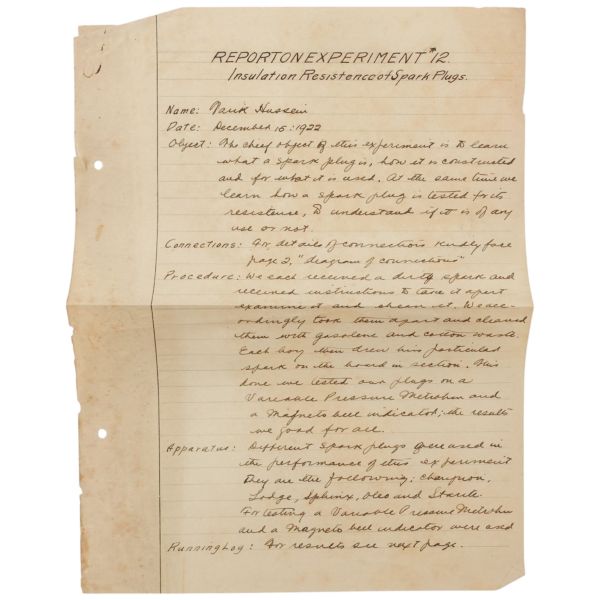 REPORT ON EXPERIMENT #12.
Insulation Resistence of Spark Plugs.
Name: Tarik Hussein
Date: December 15: 1922
Object: The chief object of this experiment is to learn
what a spark plug is, how it is constructed
and for what it is used. At the same time we
learn how a spark plug is tested for its
resistense, & understand if it is of any
use or not.
Connections: For details of connections kindly face
page 2, "diagram of connections"
Procedure: We each received a dirty spark and
received instructions to take it apart
examine it and clean it. We acc-
ordingly took them apart and cleaned
them with gasolene and cotton waste.
Each boy then drew his particular
spark on the board in section. This
done we tested our plugs on a
Variable Pressure Metrohm and
a Magneto bell indicator; the results
we good for all.
Apparatus: Different spark plugs were used in
the performance of this experiment
They are the following: Champion,
Lodge, Sphinx, Oleo and
For testing a Variable Pressure Metrohm
and a Magneto bell indicator were used
Running Log: For results see next page.